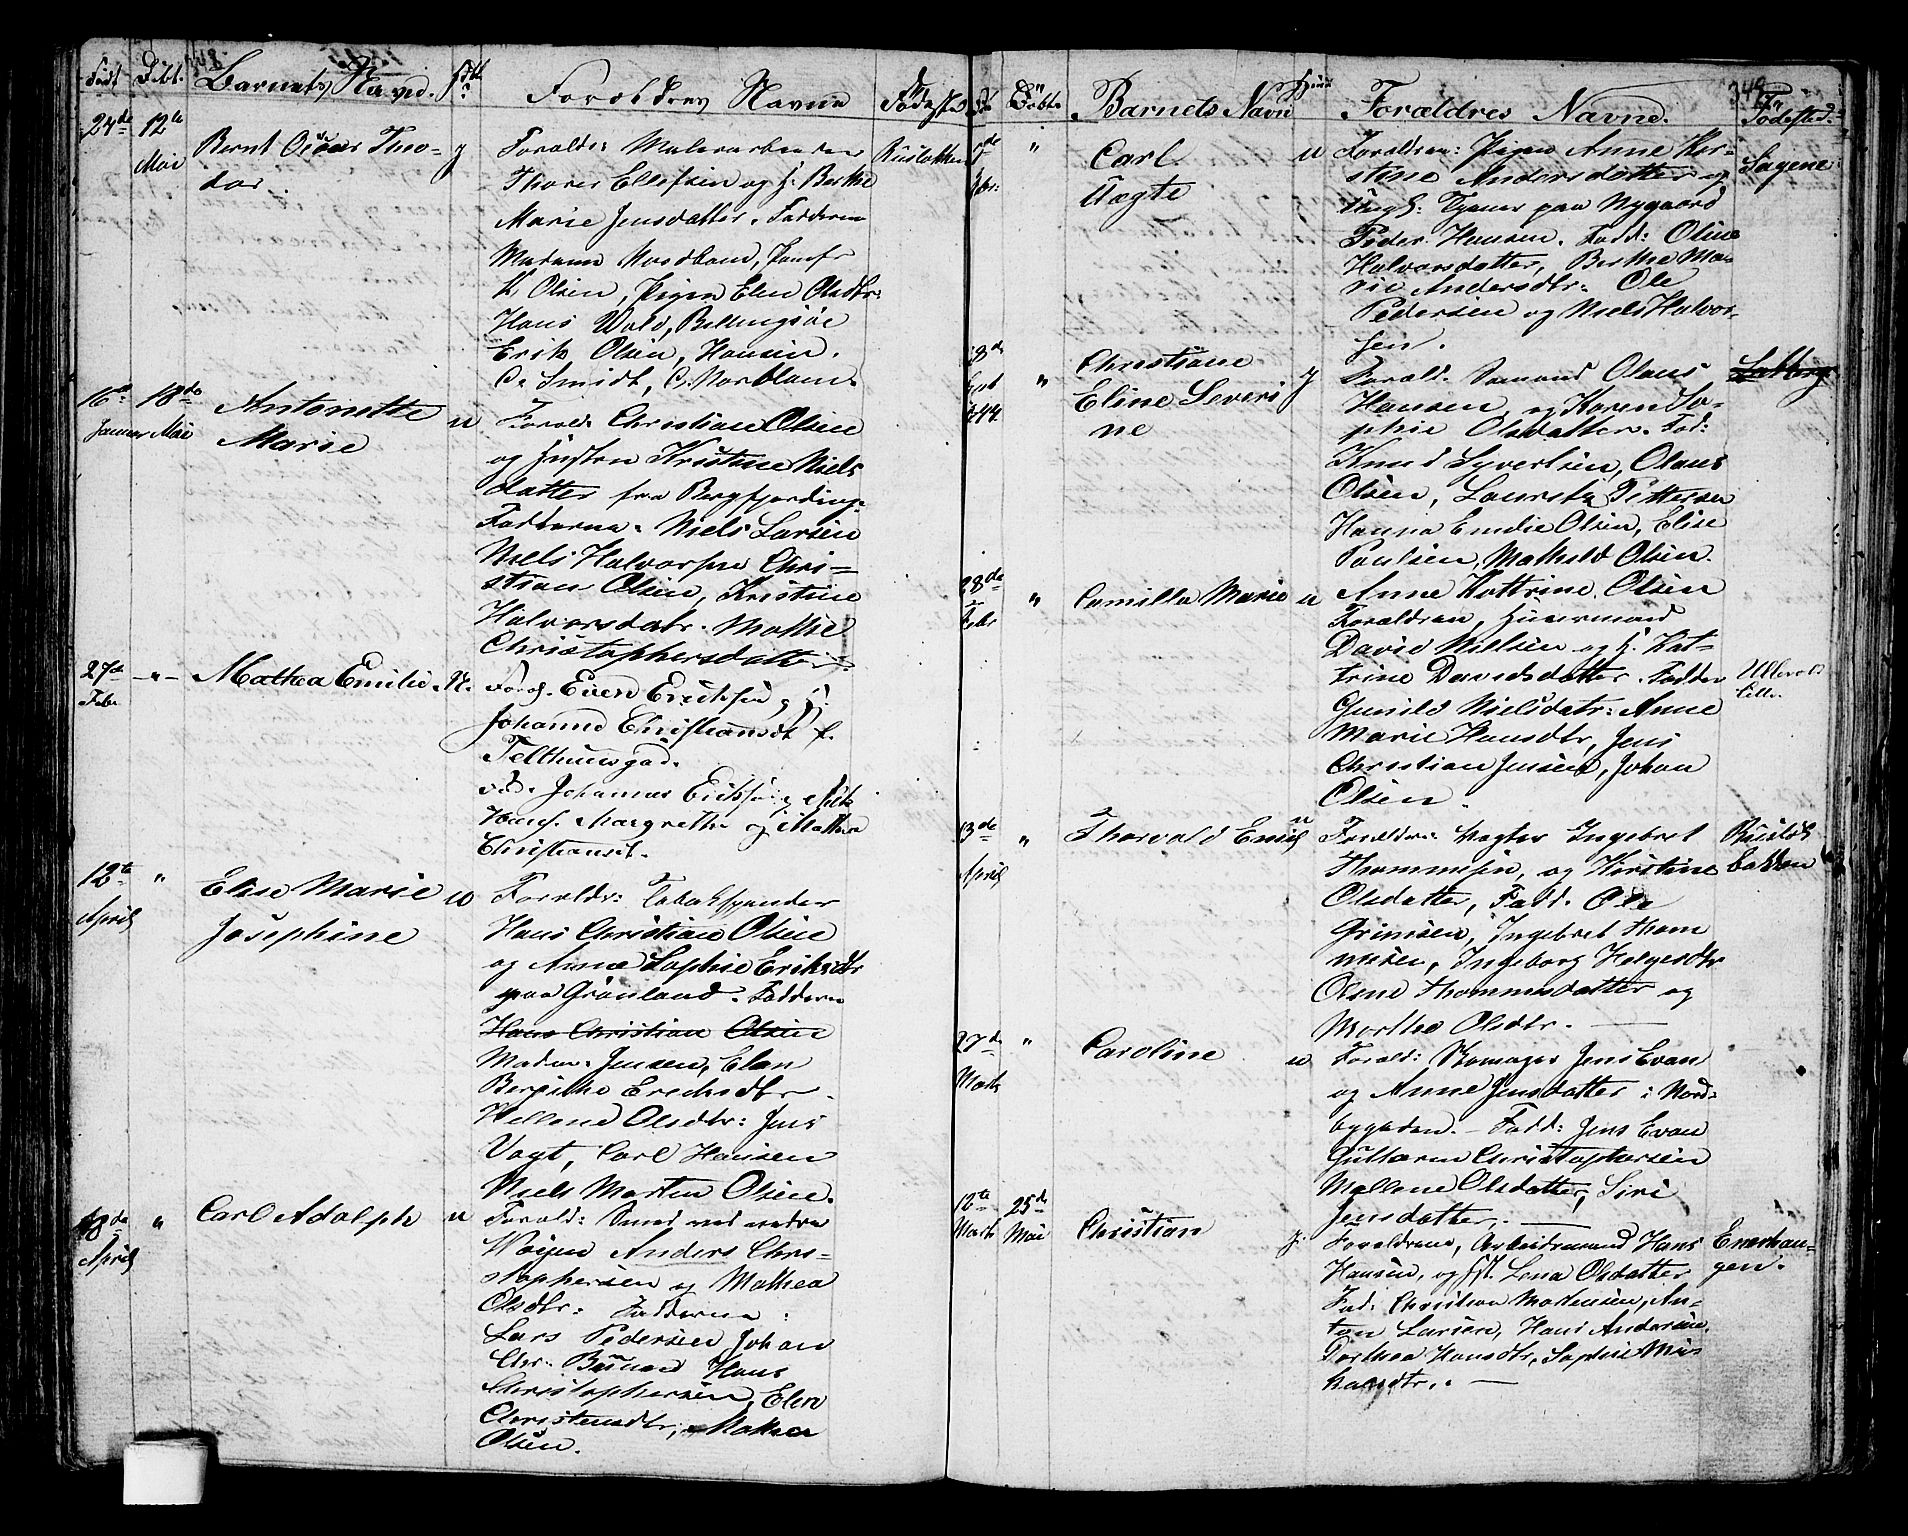 Født Døbt. Barnets Navn. Forældres Navne Fødested
12te
Mai
Bernt Theo-
dor.
Thorer Ellefsen og H. Berthe
Marie Jensdatter. Fadderne
Madame
Olsen, Pigen Elen Olsdtr:
Hans Wold, Bellingsøe
Erik Olsen, Hansen.
C. Smidt, C. Norblom.
16de Januar 18de Mai
Antonette
Marie
u
Foræld: Christian Olsen
og Kristine Niels
datter fra
Fadderne: Niels Larsen
Niels Halvorsen Chri-
stian Olsen, Kristine
Halvorsdatr. Mathe
Christophersdatter.
27de Febr
Mathea Emilie
Foræl. Even Eriksen og H.
Johanne Christiansdt
Telthuusgad.
Johannes Eriksen
Margrethe og Mathea
Christiansdt.
12te April "
Elise Marie
Josephine
u
Foræld: Tobakspinder
Hans Christian Olsen
og Anne Sophie Eriksdtr
paa Grønland. Fadderne
Hans Christian Olsen
Madm: Jensen, Elen
Erichsdtr.
Hellene Olsdtr: Jens
Vogt, Carl Hansen
Niels Morten Olsen.
18de April "
Carl Adolph
u
Foræld: Smed ved nedre
Voyen Anders Chri-
stophersen og Mathea
Olsdtr: Fadderne:
Lars Pedersen Johan
Chr. Hans
Christophersen, Elen
Christensdtr, Mathea
Olsen.
349
Døbte Barnets Navn Forældres Navne. Fødested.
"
Carl
Uægte
u
Forældren: Pigen Anne Ker-
stine Andersdatter og
Ungk: Tjener paa Nygaard
Peder Hansen. Fadd: Oline
Halvorsdatter, Berthe Ma-
rie Andersdtr: Ole
Pedersen og Niels Halvor-
sen.
Sagene
18de
"
Christiane
Eline Severi
ne
Foræld. Sømand Olaus
Hansen og Karen So-
phie Olsdatter. Fad:
Knud Syvertsen, Olaus
Olsen, Pettersen
Hanna Emilie Olsen, Elise
Paulsen, Mathild Olsen.
Anne Kattrine Olsen
28de Febr
"
Camilla Marie
u
Forældren, Huusmand
David Nielsen og H. Kat-
trine Davidsdatter. Fadder
Gunild Nielsdatr: Anne
Marie Hansdtr, Jens
Christian Jensen, Johan
Olsen.
13de April
"
Thorvald Emil
u
Forældre: Vægter Ingebret
Thommesen, og Kirstine
Olsdatter, Fadd: Ole
Grimsen, Ingebret Thom
mesen, Ingeborg Helgesdtr
Olene Thommesdatter og
Marthe Olsdtr.
27de Marts
"
Caroline
u
Foræld: Skomager Jens Evan
og Anne Jensdatter i Nord-
bygaden. — Fadd: Jens Evan
Guttorm Christophersen
Mallene Olsdatter, Siri
Jensdatter,
12te Marts 25de Mai
Christian
Forældrene, Arbeidsmand Hans
Hansen, og Lena Olsdatter
Fad: Christian Mortensen, An-
ton Larsen, Hans Andersen.
Dorthea Hansdtr, Sophie
Enerhau-
gen.